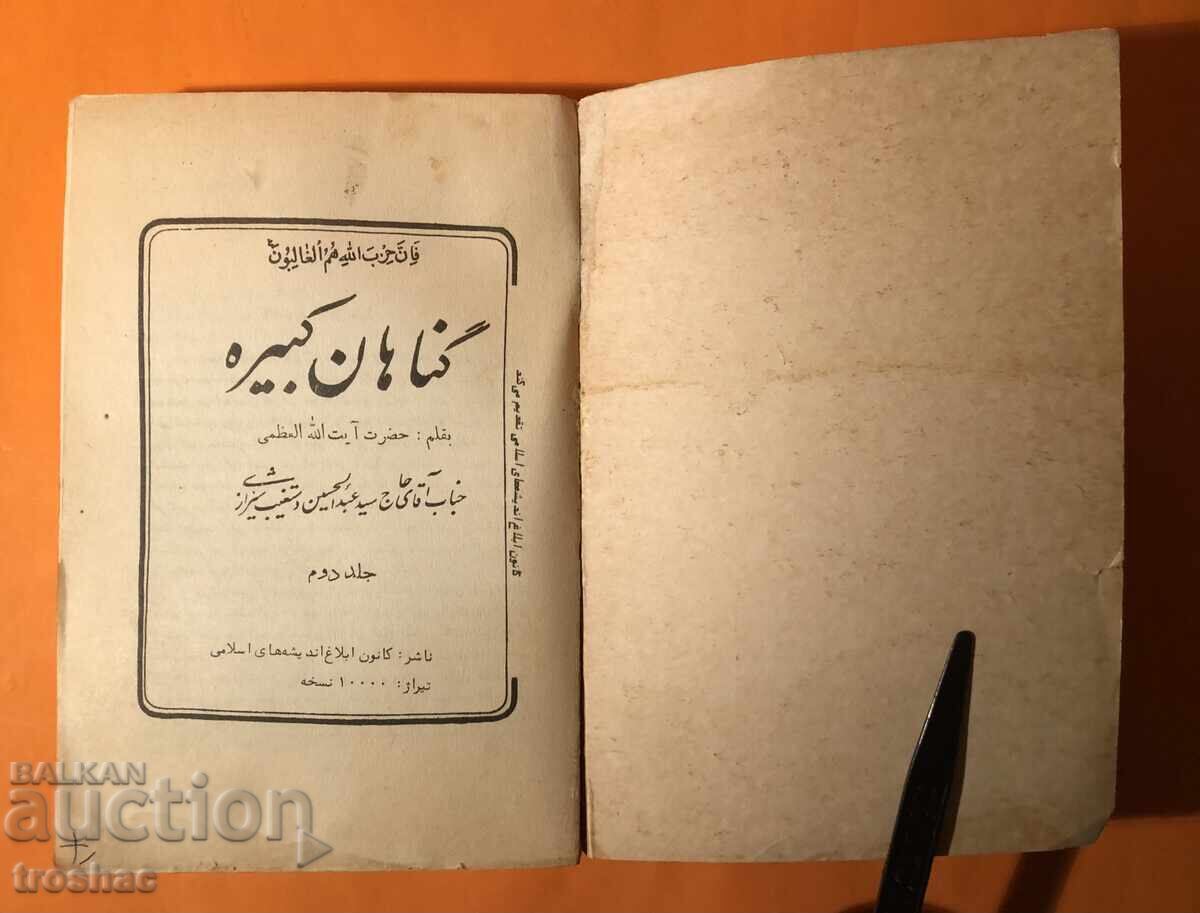 فَاِنَّ حِزْبَ اللهِ هُمُ الْغالِبُونَ
گناهان کبیره
بقلم: حضرت آیت الله العظمی
جناب آقای حاج سید عبدالحسین دستغیب شیرازی
جلد دوم
ناشر: کانون ابلاغ اندیشه‌های اسلامی
تیراژ: ۱۰۰۰۰ نسخه
کانون ابلاغ اندیشه‌های اسلامی تقدیم می‌کند
BALKAN
auction
troshac